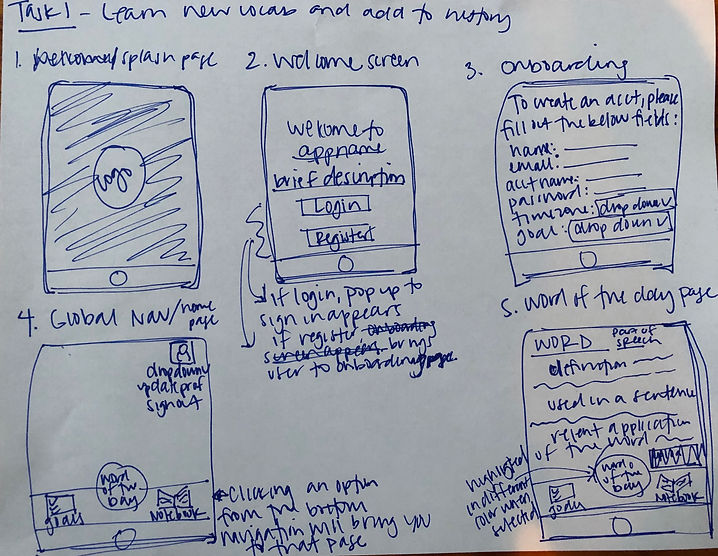 Task 1 - Learn new vocab and add to history
1. Welcome/splash page
logo
2. Welcome screen
welcome to
appname
brief description
Login
Register
if login, pop up to
sign in appears
if register, onboarding
screen appears brings
user to onboarding page
3. onboarding
To create an acct, please
fill out the below fields:
name:
email:
acct name:
password:
timezone: drop down v
goal: drop down v
4. Global Nav/home
page
dropdown
update prof
signout
word
of the
day
goals
notebook
Clicking an option
from the bottom
navigation will bring you
to that page
5. Word of the day page
WORD part of
speech
definition
used in a sentence
recent application
of the word
word
of the
day
goals
notebook
highlighted
in different
color when
selected